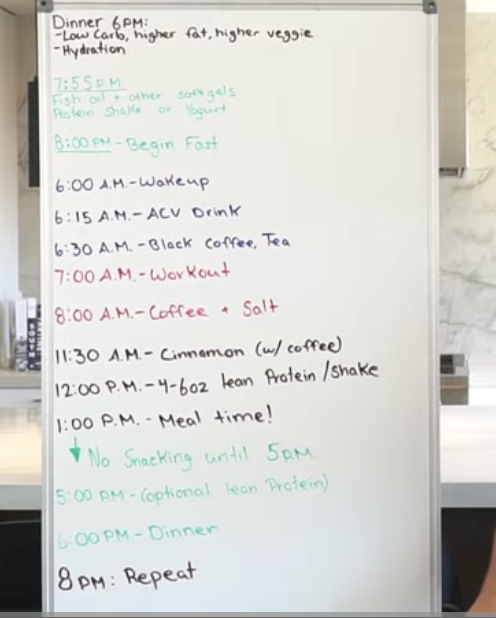 Dinner 6PM:
-Low Carb, higher fat, higher veggie
-Hydration
7:55 P.M.
Fish oil + other softgels
Protein Shake or Yogurt
8:00 PM - Begin Fast
6:00 A.M.-Wakeup
6:15 A.M.- ACV Drink
6:30 A.M. -Black Coffee, Tea
7:00 A.M.-Workout
8:00 A.M.-Coffee + Salt
11:30 A.M.- Cinnamon (w/ coffee)
12:00 P.M.-4-6oz lean Protein/shake
1:00 P.M. - Meal time!
No Snacking until 5P.M.
5:00 PM-(optional lean Protein)
6:00 PM-Dinner
8PM: Repeat